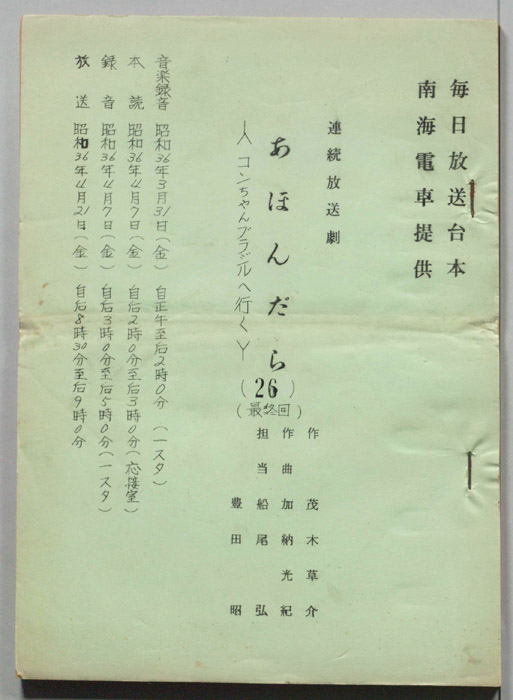 毎日放送台本
南海電車提供
連続放送劇
あほんだら
(26)
(最終回)
コンちゃんブラジルへ行く
作 茂木草介
作曲 加納光紀
担当 船尾弘
豊田昭
音楽録音 昭和36年3月31日(金) 自正午至后2時0分 (一スタ)
本読 昭和36年4月7日(金) 自后2時0分至后3時0分(応接室)
録音 昭和36年4月7日(金) 自后3時0分至后5時0分(一スタ)
放送 昭和36年4月21日(金) 自后8時30分至后9時0分